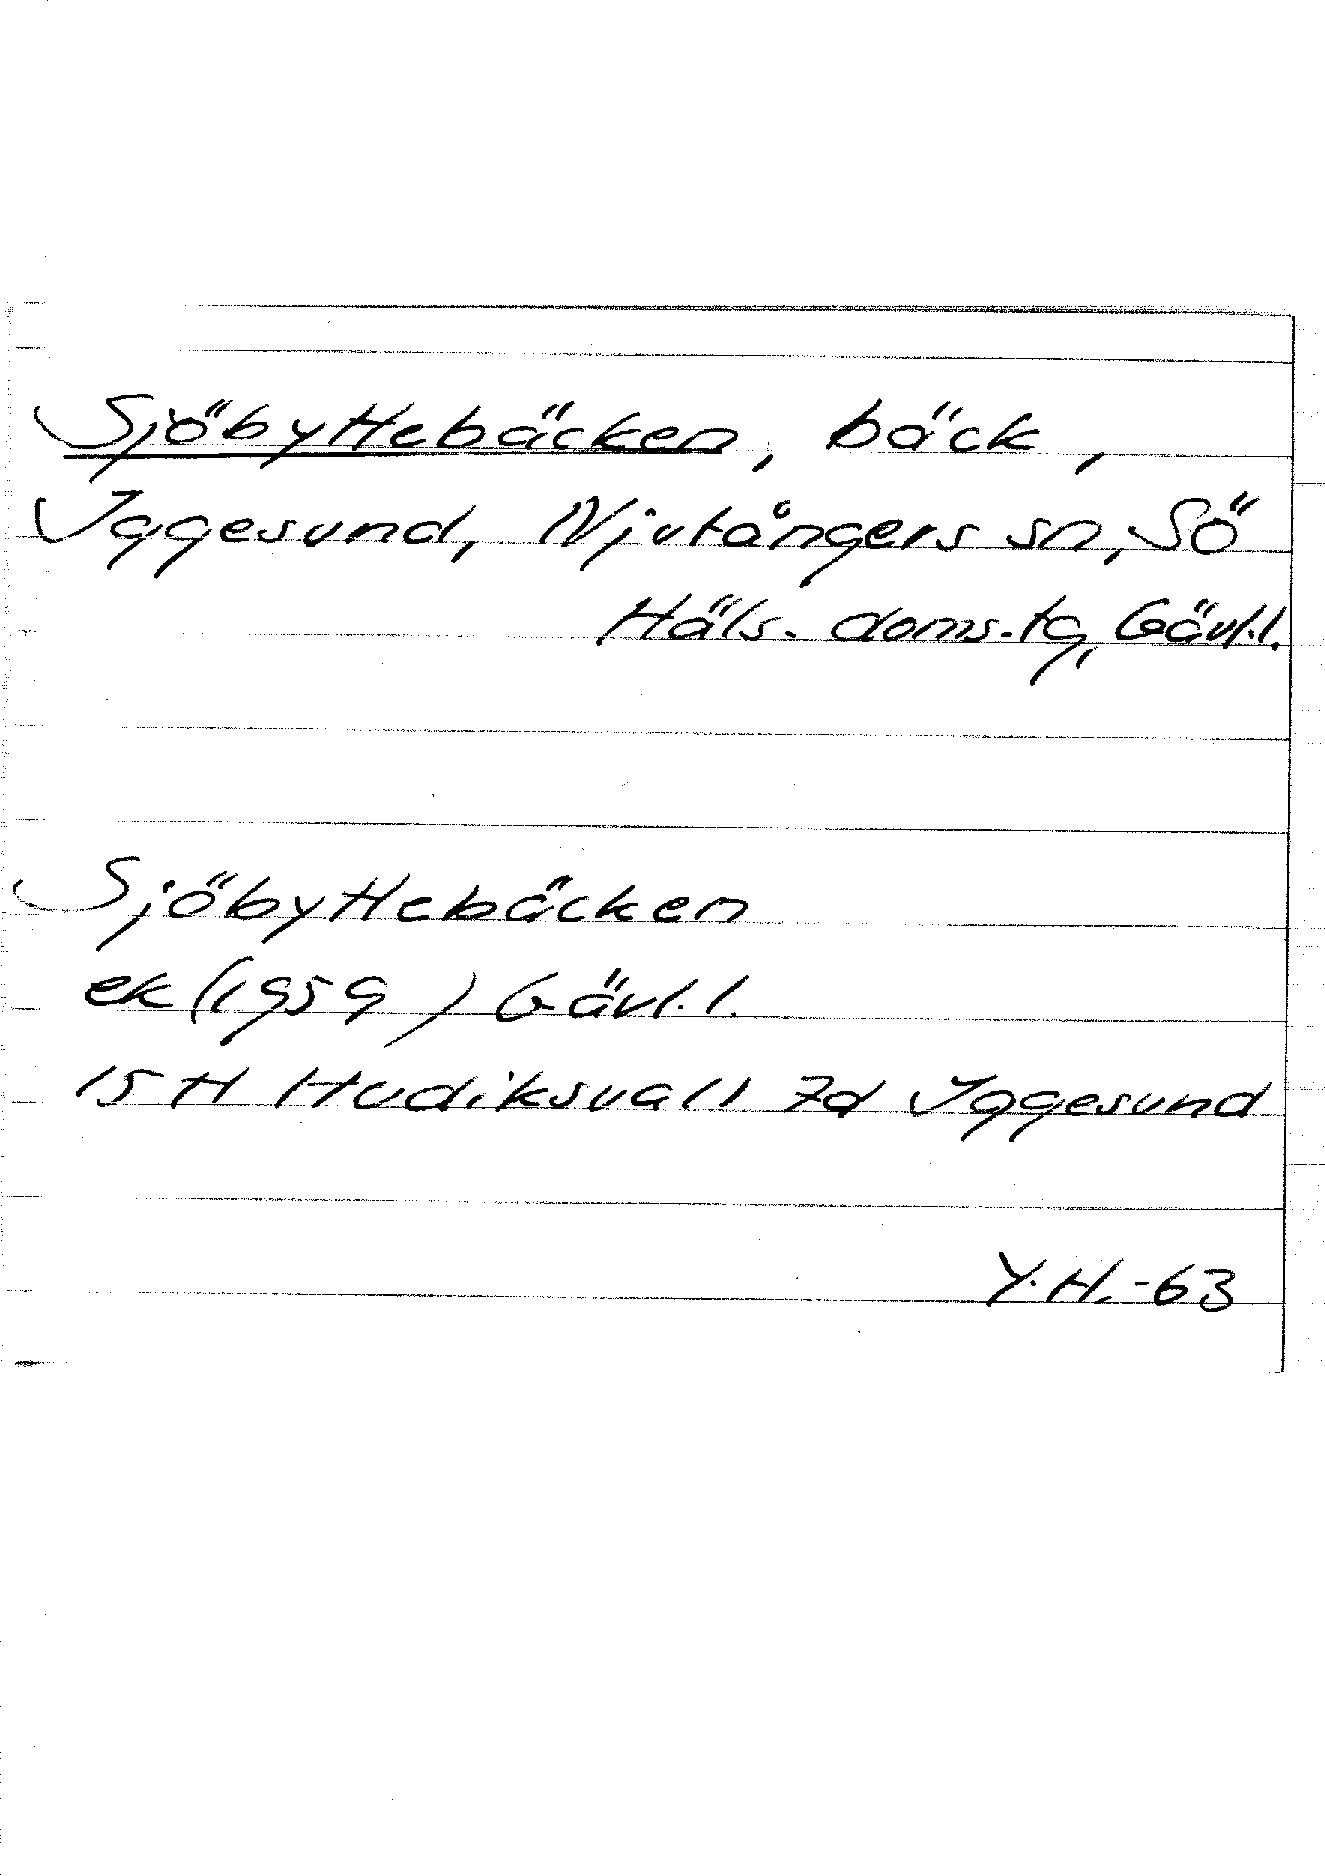 Sjöbyttebäcken, bäck,
Iggesund, Njutångers sn, Sö
Häls. doms.tg, Gävl.l.
Sjöbyttebäcken
ek (1959) Gävl.l.
15 H Hudiksvall 7d Iggesund
Y.H.-63